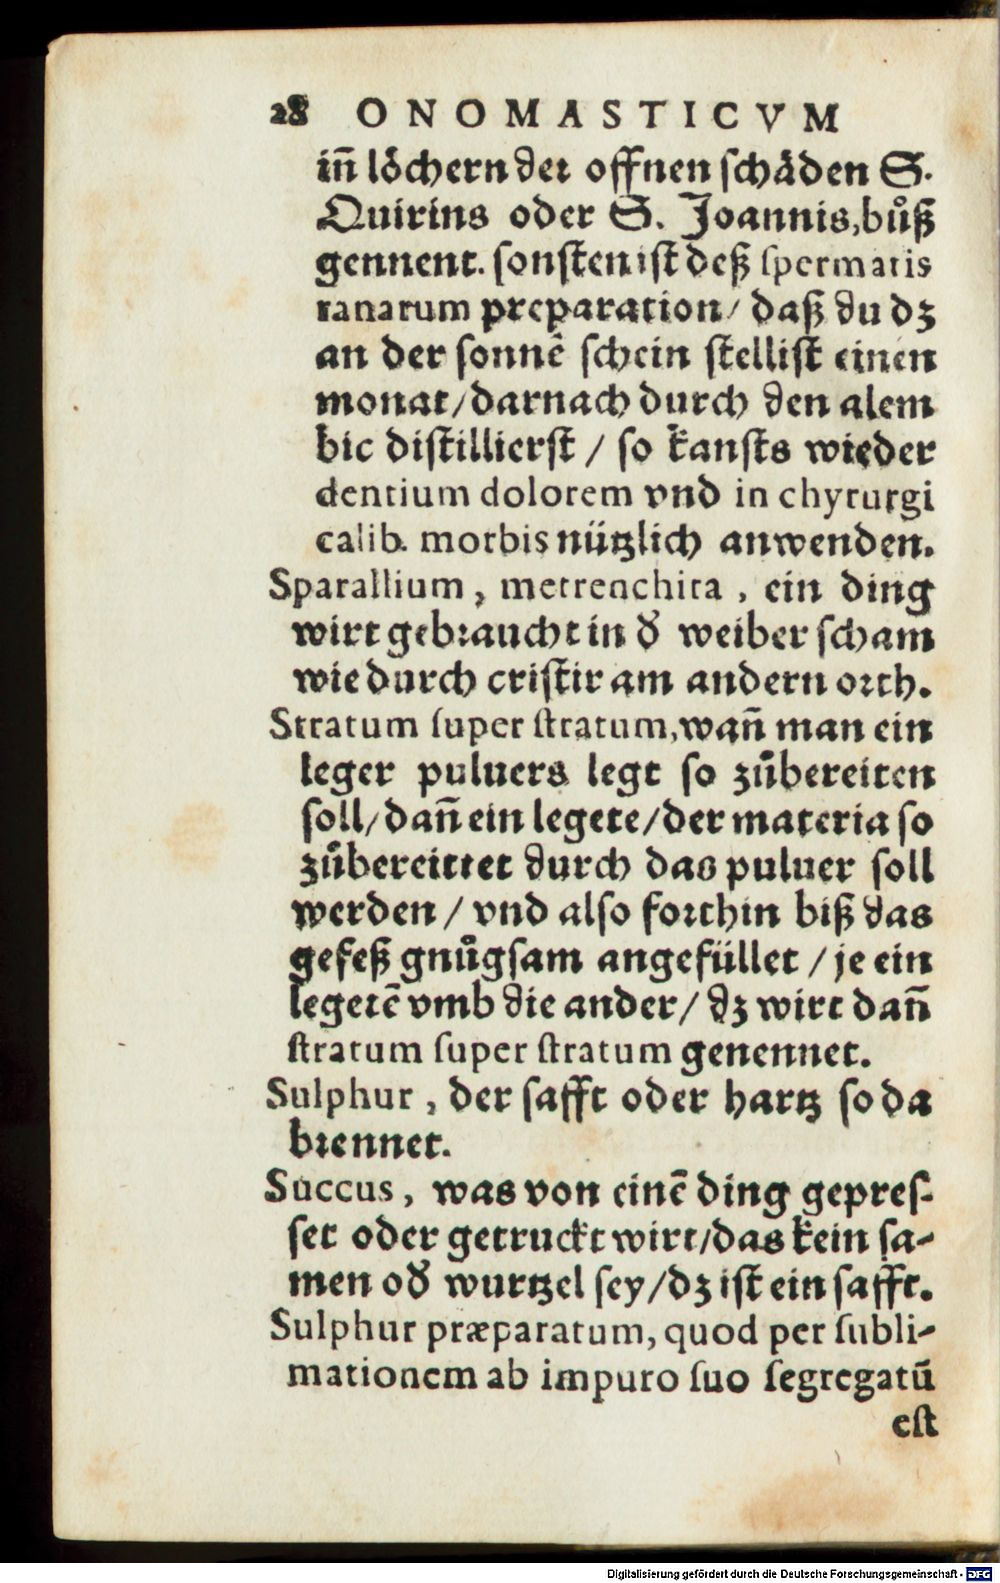 28 ONOMASTICVM
iñ löchern der offnen schäden S.
Quirins oder S. Joannis, bůß
gennent. sonsten ist deß spermatis
ranarum preparation / daß du dz
an der sonnē schein stellist einen
monat / darnach durch den alem
bic distillierst / so kansts wieder
dentium dolorem vnd in chyrurgi
calib. morbis nützlich anwenden.
Sparallium, metrenchita, ein ding
wirt gebraucht in d̕ weiber scham
wie durch cristir am andern orth.
Stratum super stratum, wañ man ein
leger puluers legt so zůbereiten
soll / dañ ein legete / der materia so
zůbereittet durch das puluer soll
werden / vnd also forthin biß das
gefeß gnůgsam angefüllet / je ein
legetē vmb die ander / dz wirt dañ
stratum super stratum genennet.
Sulphur, der safft oder hartz so da
brennet.
Succus, was von einē ding gepres-
set oder getruckt wirt / das kein sa-
men od̕ wurtzel sey / dz ist ein safft.
Sulphur præparatum, quod per subli-
mationem ab impuro suo segregatū
est
Digitalisierung gefördert durch die Deutsche Forschungsgemeinschaft - DFG